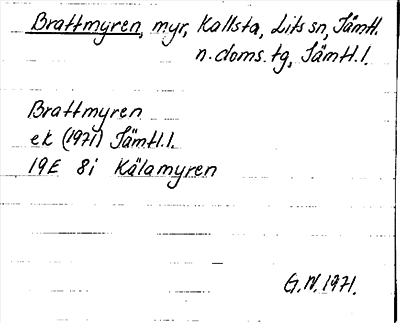 Brattmyren, myr, Kallsta, Lits sn, Jämtl.
n. doms. tg, Jämtl. l.
Brattmyren
ek (1971) Jämtl. l.
19E 8i Kälamyren
G.N. 1971.